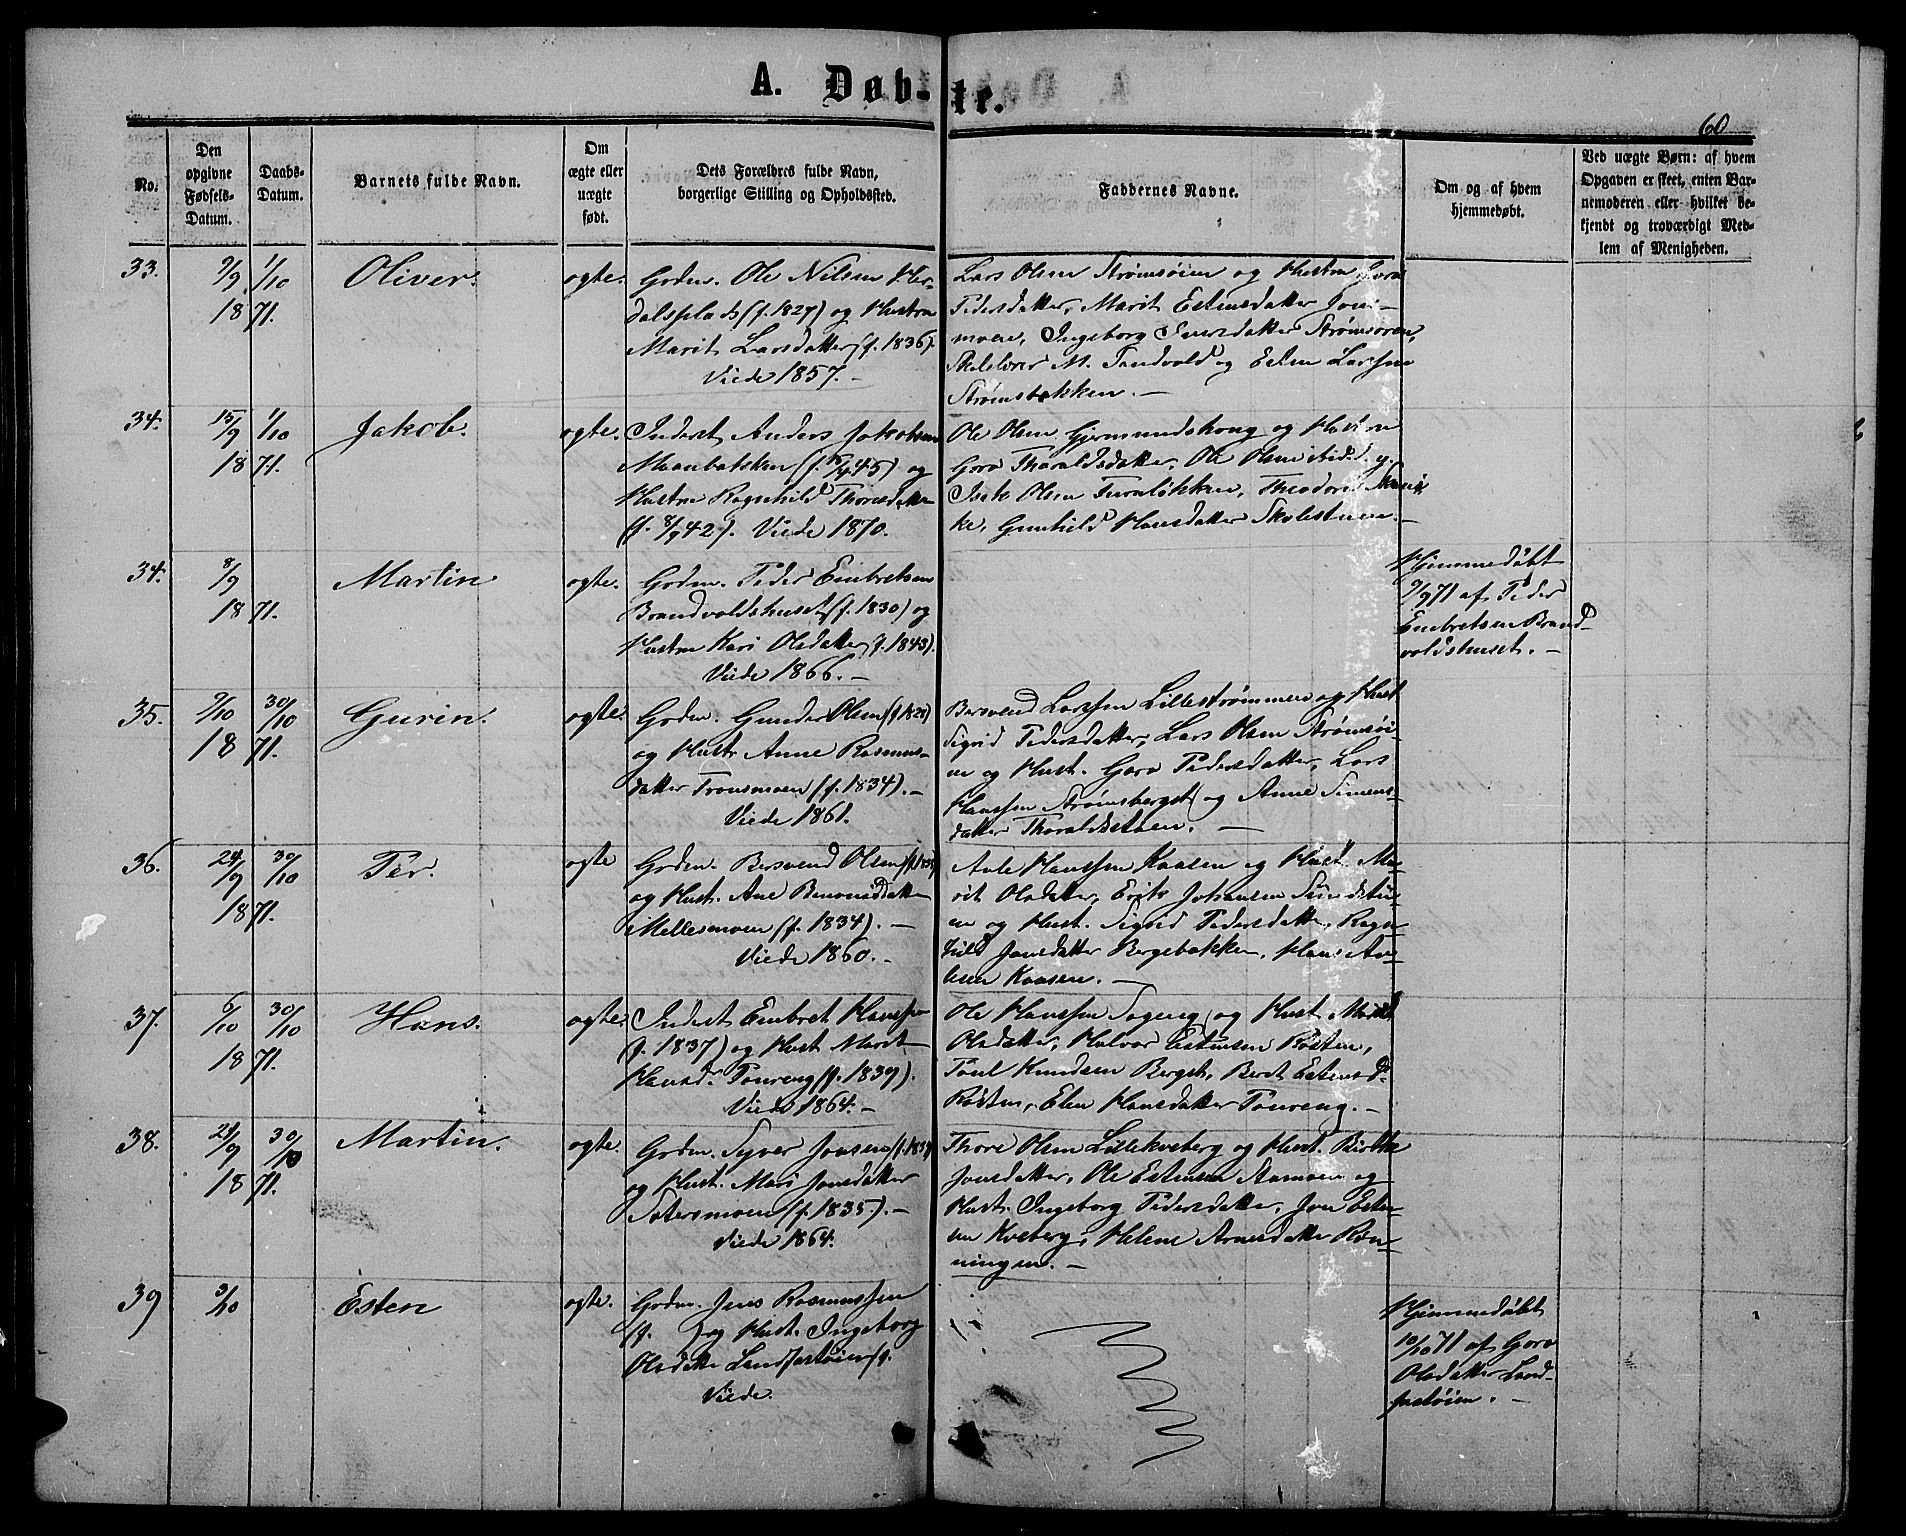 A. Døb-te.
60
No.
Den
opgivne
Fødsels-
Datum.
Daabs-
Datum.
Barnets fulde Navn.
Om
ægte eller
uægte
født.
Dets Forældres fulde Navn,
borgerlige Stilling og Opholdssted.
Faddernes Navne.
Om og af hvem
hjemmedøbt.
Ved uægte Børn: af hvem
Opgaven er skeet, enten Bar-
nemoderen eller hvilket be-
kjendt og troværdigt Med-
lem af Menigheden.
33.
9/9 1/10
18 71.
Oliver.
ægte.
Grdm. Ole Nilsen
dalsplads (f. 1827) og Hustru
Marit Larsdatter (f. 1836).
Viede 1857. –
Lars Olsen Strømsøien og Hustru Goro
Pedersdatter, Marit Estensdatter Jons-
moen, Ingeborg Iversdatter Strømsøien,
Skolelærer M. Tendvold og Esten Larssen
Strømsbakken. –
34.
15/9 1/10
18 71.
Jakob.
ægte.
Inderst Anders Jakobsen
Moanbakken (f. 45) og
Hustru Ragnhild Thoresdatter
(f. 8/9 42). Viede 1870.
Ole Olsen Gjermundshaug og Hustru
Goro Tharaldsdatter, Ole Olsen
Isak Olsen Furuløkken, Theodor
ke, Gunhild Hansdatter Skolestuen. –
34.
8/9
18 71.
Martin
ægte.
Grdm. Peder Embretsen
Brandvoldshuset (f. 1830) og
Hustru Kari Olsdatter (f. 1843).
Viede 1866. –
Hjemmedøbt
9/9 71 af Peder
Embretsen Brand-
voldshuset. –
35.
9/10 30/10
18 71.
Gurin.
ægte.
Grdm. Gunder Olsen (f. 1828)
og Hustr. Anne Rasmus-
datter Tronsmoen (f. 1834). –
Viede 1861.
Bersvend Larssen Lillestrømmen og Hust.
Sigrid Pedersdatter, Lars Olsen Strømsøi-
en og Hust. Goro Pedersdatter, Lars
Hanssen Strømsberget og Anne Simens-
datter Tharaldsstuen. –
36.
24/9 30/10
18 71.
Per.
ægte
Grdm. Bersvend Olsen
og Hust. Ane Benonisdatter
Mellesmoen (f. 1834). –
Viede 1860. –
Avle Hanssen Kaasen og Hust. Ma-
rit Olsdatter, Erik Johansen Sundstu-
en og Hust. Sigrid Pedersdatter, Ragn-
hild Jonsdatter Bergebakken, Hans Av-
lesen Kaasen. –
37.
6/10 30/10
18 71.
Hans.
ægte.
Inderst Embret Hanssen
(f. 1837) og Hust. Marit
Hansd. Toureng (f. 1839).
Viede 1864. –
Ole Hanssen Toreng og Hust. Marit
Olsdatter, Halvor Estensen Røsten,
Poul Knudsen Berget, Beret Estensd.
Røsten, Elen Hansdatter Toureng. –
38.
24/9 30/10
18 71.
Martin.
ægte.
Grdm. Syver Jonsen
og Hust. Mari Jonsdatter
Sætersmoen (f. 1835). –
Viede 1864.
Thore Olsen Lillekveberg og Hust. Birthe
Jonsdatter, Ole Estensen Aamoen og
Hust. Ingeborg Pedersdatter, Jon Esten-
sen Kveberg, Helene Arnesdatter Røn-
ningen. –
39
3/10
Esten
ægte.
Grdm. Jens Rasmussen
(f. ) og Hust. Ingeborg
Olsdatter Landfastøien (f.
Viede
Hjemmedøbt
10/10 71 af Goro
Olsdatter Land-
fastøien. –